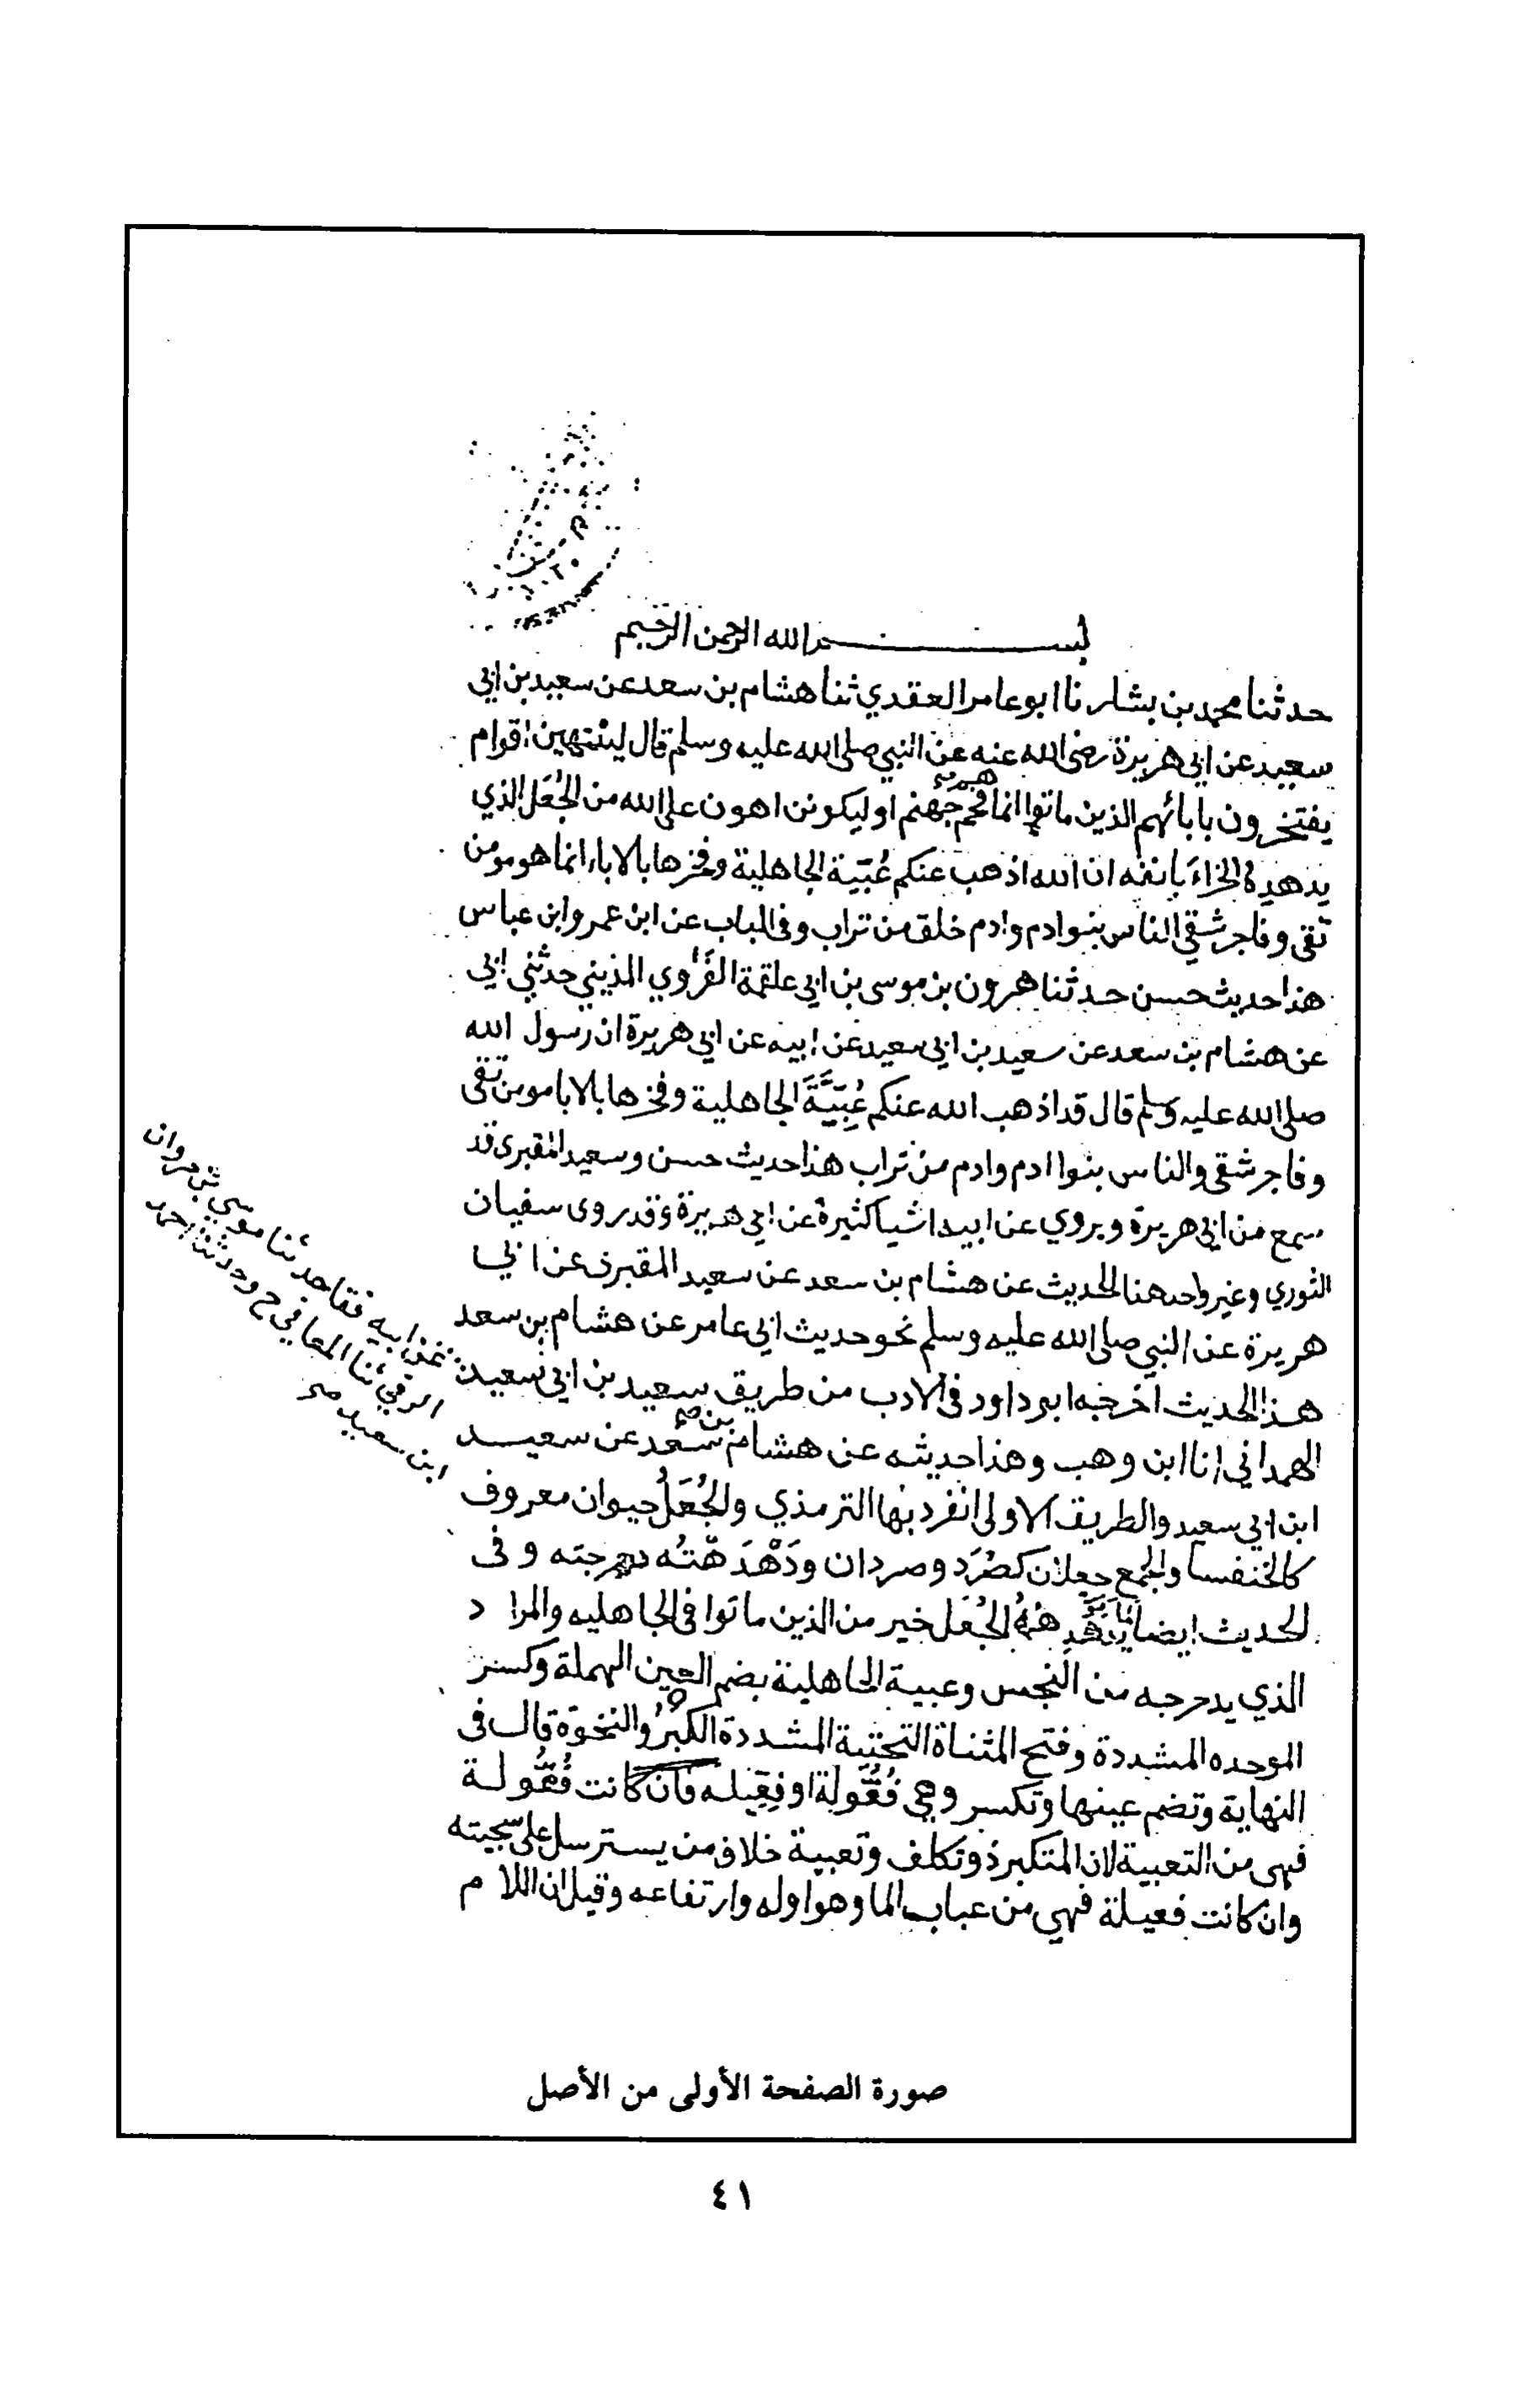 بسم الله الرحمن الرحيم
حدثنا محمد بن بشار نا ابو عامر العقدي ثنا هشام بن سعد عن سعيد بن ابي
سعيد عن ابي هريرة رضي الله عنه عن النبي صلى الله عليه وسلم قال لينتهين اقوام
يفتخرون بابائهم الذين ماتوا انما هم فحم جهنم او ليكونن اهون على الله من الجُعَل الذي
يدهده الخراءَ بانفه ان الله اذهب عنكم عُبّيَة الجاهلية وفخرها بالاباء انما هو مومن
تقى وفاجر شقي الناس بنو ادم وادم خلق من تراب وفى الباب عن ابن عمر وابن عباس
هذا حديث حسن حدثنا هرون بن موسى بن ابي علقمة الفَرْوي المديني حدثني ابي
عن هشام بن سعد عن سعيد بن ابي سعيد عن ابيه عن ابي هريرة ان رسول الله
صلى الله عليه وسلم قال قد اذهب الله عنكم عُبِّيَّةَ الجاهلية وفخرها بالابا مومن تقى
وفاجر شقى والناس بنوا ادم وادم من تراب هذا حديث حسن وسعيد المقبرى قد
سمع من ابي هريرة ويروي عن ابيه اشيا كثيرة عن ابي هريرة وقد روى سفيان
الثوري وغير واحد هذا الحديث عن هشام بن سعد عن سعيد المقبرى عن ابي
هريرة عن النبي صلى الله عليه وسلم نحو حديث ابي عامر عن هشام بن سعد
هذا الحديث اخرجه ابو داود فى الادب من طريق سعيد بن ابي سعيد
عن ابيه فقا حدثنا موسى بن مروان
الرقي ثنا المعافي ح وحدثنا احمد
ابن سعيد صح
الهمداني انا ابن وهب وهذا حديثه عن هشام بن سعد عن سعيد
ابن ابي سعيد والطريق الاولى انفرد بها الترمذي والجُعَلُ حيوان معروف
كالخنفسا والجمع جعلان كصُرَد وصردان ودَهْدَهْتُه دحرجته وفى
الحديث ايضا لما يُدَهْدِهُ الجُعَل خير من الذين ماتوا فى الجاهليه والمراد
الذي يدحرجه من النجس وعبية الجاهلية بضم العين المهملة وكسر
الموحده المشددة وفتح المثناة التحتية المشددة الكِبْرُ والنخوة قال فى
النهاية وتضم عينها وتكسر وهي فُعُّولة او فِعِّيله فان كانت فُعُّولة
فهى من التعبية لان المتكبر ذو تكلف وتعبية خلاف من يسترسل على سجيته
وان كانت فعيلة فهي من عباب الما وهو اوله وارتفاعه وقيل ان اللام
صورة الصفحة الأولى من الأصل
٤١